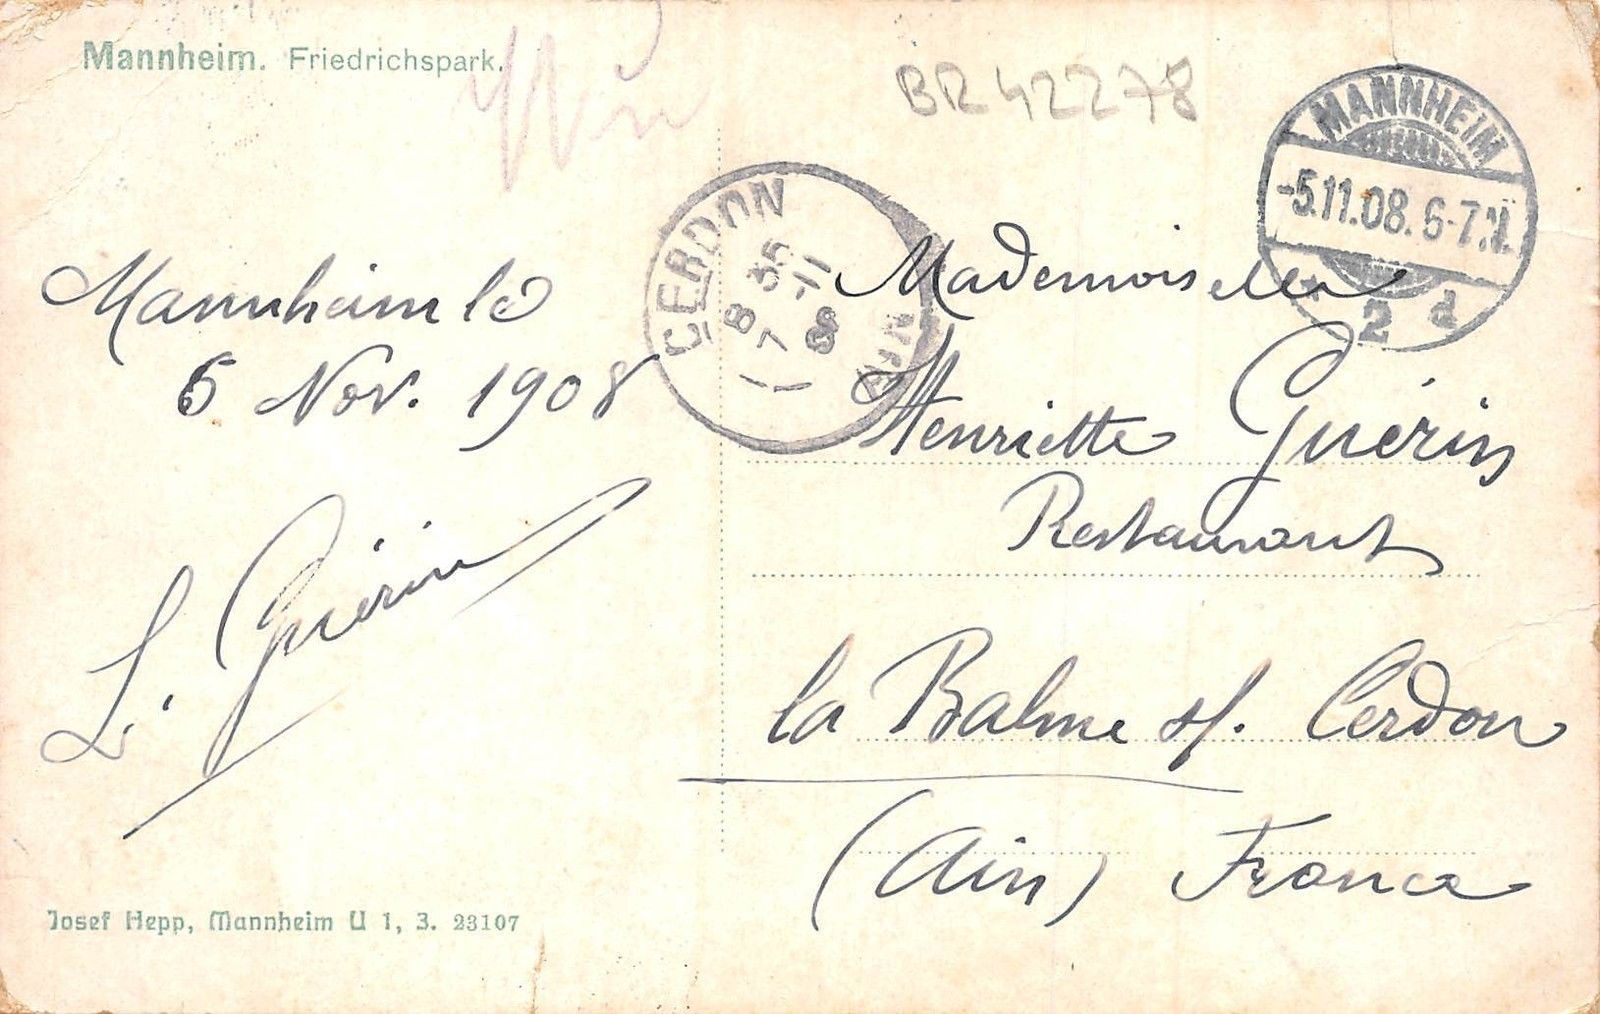 Mannheim. Friedrichspark.
BR 42278
MANNHEIM
-5.11.08. 6-7.N.
* 2 d
CERDON
8 35
7 -11
08
AIN
Mannheim le
5 Nov. 1908
L. Guérin
Mademoiselle
Henriette Guérin
Restaurant
la Balme s/. Cerdon
(Ain) France
Josef Hepp, Mannheim U 1, 3. 23107